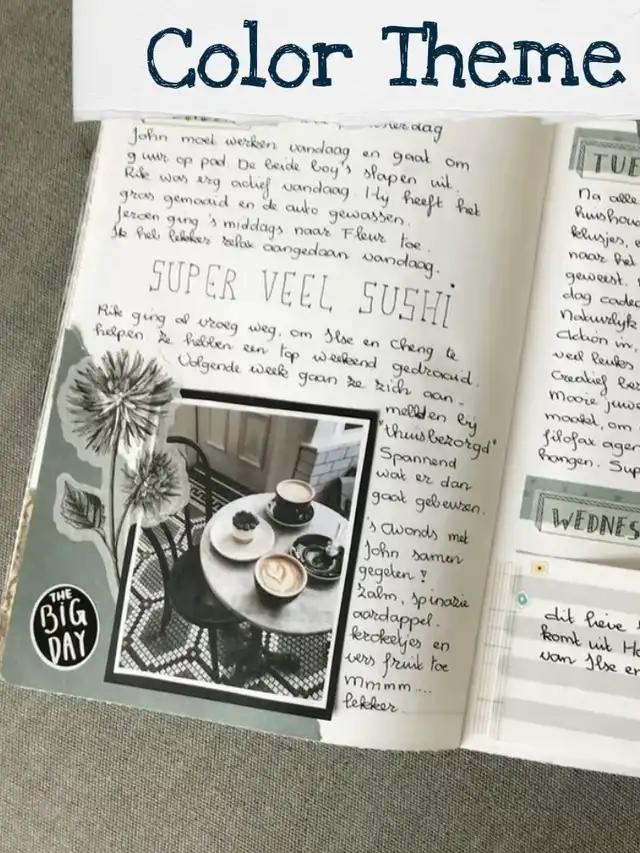 Color Theme
John moet werken vandaag en gaat om
9 uur op pad. De beide boy's slapen uit.
Rik was erg actief vandaag. Hij heeft het
gras gemaaid en de auto gewassen.
Jeroen ging 's middags naar Fleur toe.
Ik heb lekker relax aangedaan vandaag.
SUPER VEEL SUSHI
Rik ging al vroeg weg, om Ilse en Cheng te
helpen. Ze hebben een top weekend gedraaid.
Volgende week gaan ze zich aan-
melden bij
"thuisbezorgd"
Spannend
wat er dan
gaat gebeuren.
's Avonds met
John samen
gegeten!
Zalm, spinazie
aardappel.
kroketjes en
vers fruit toe
mmmm...
lekker.
THE
BIG
DAY
TUE
Na alle
huishou
klusjes, e
naar het
geweest.
dag cadea
Natuurlijk
Action in,
veel leuks
Creatief be
Mooie juwe
maakt, om
filofax agen
hangen. Sup
WEDNES
dit lieve
komt uit Ho
van Ilse en